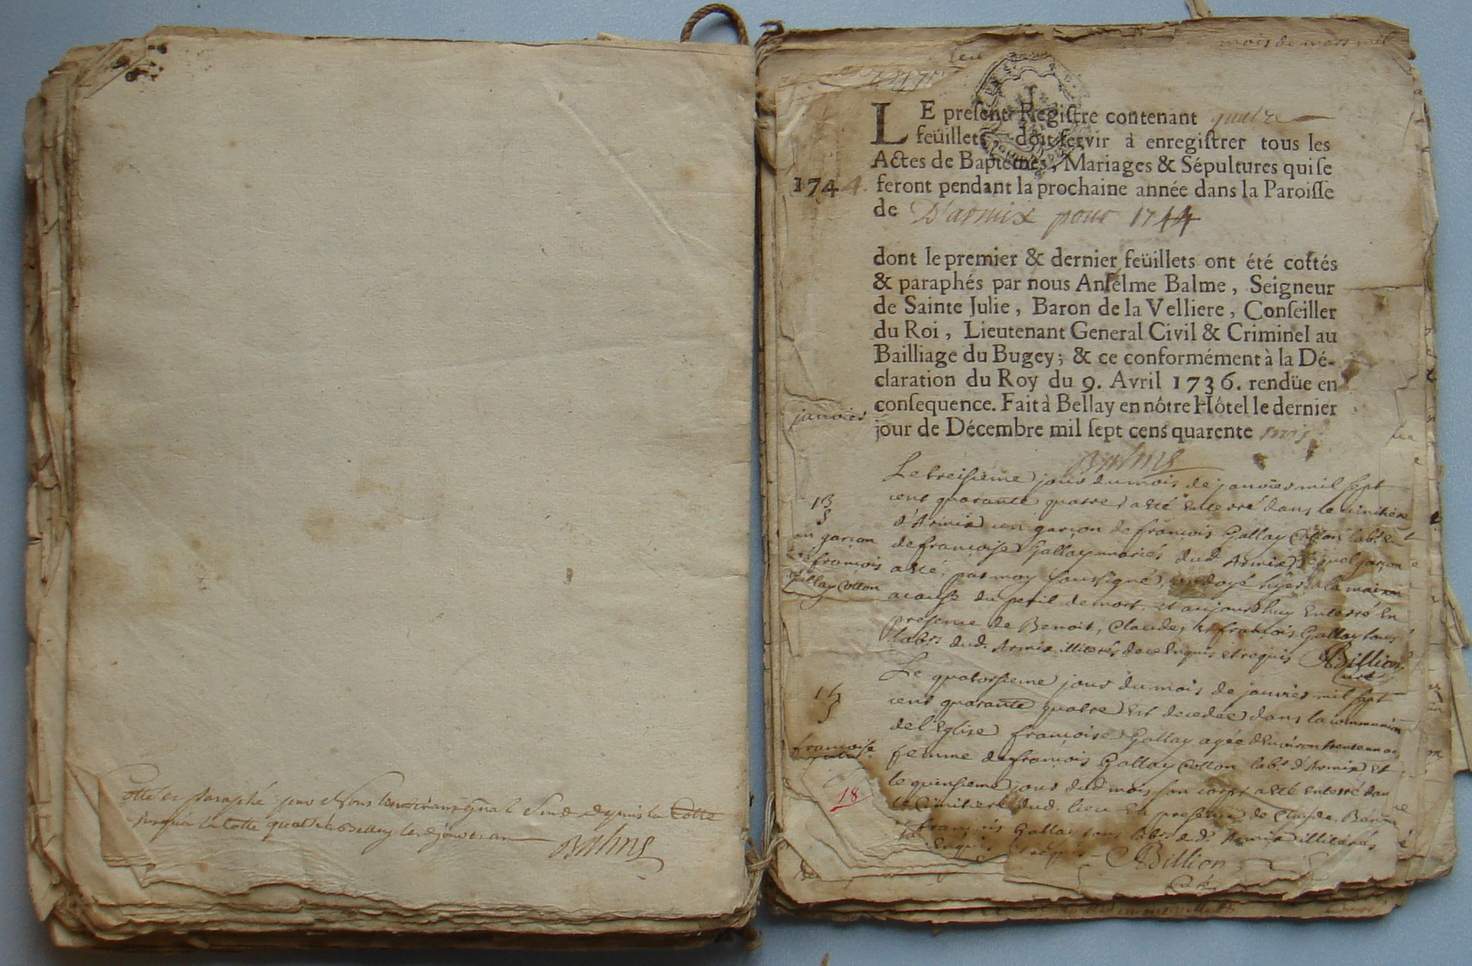 Cotté et Paraphé par Nous Lieutenant gnal Civil depuis la Cotte
jusqu'à la Cotte quatre Belley le jour et an
Balme
mois de mars mil
LE preſent Regiſtre contenant quatre
feüillets, doit ſervir à enregiſtrer tous les
Actes de Baptemes, Mariages & Sépultures qui ſe
1744. feront pendant la prochaine année dans la Paroiſſe
de D'armix pour 1744
dont le premier & dernier feüillets ont été cottés
& paraphés par nous Anſelme Balme, Seigneur
de Sainte Julie, Baron de la Velliere, Conſeiller
du Roi, Lieutenant General Civil & Criminel au
Bailliage du Bugey; & ce conformément à la Dé-
claration du Roy du 9. Avril 1736. rendüe en
conſequence. Fait à Bellay en nôtre Hôtel le dernier
jour de Décembre mil ſept cens quarente trois
Balme
janvier
Le treisieme jour du mois de janvier mil sept
cent quarante quatre a esté enterré dans le cimitiere
d'Armix un garçon de françois Gallay Cotton labr et
de françoise Gallay mariés dud. Armix lequel garçon
a esté par moy soussigné, ondoyé hyer a la maison
a cause du peril de mort, et aujourdhuy enterré en
presence de Benoit, Claude, et françois Gallay tous
labrs dud. Armix illiterés de ce enquis et requis Billion
curé
13
un garçon
françois
Gallay Cotton
Le quatorsieme jour du mois de janvier mil sept
cent quarante quatre est decedée dans la communion
de l'Eglise françoise Gallay agée d'environ trente
femme de françois Gallay Cotton labr d'Armix et
le quinsieme jour dud. mois son corps a esté enterré dan
le Cimitiere dud. lieu en presence de Claude, Benoit
et françois Gallay tous labrs dud. Armix illiterés
enquis et requis Billion
Curé
14
françoise
18